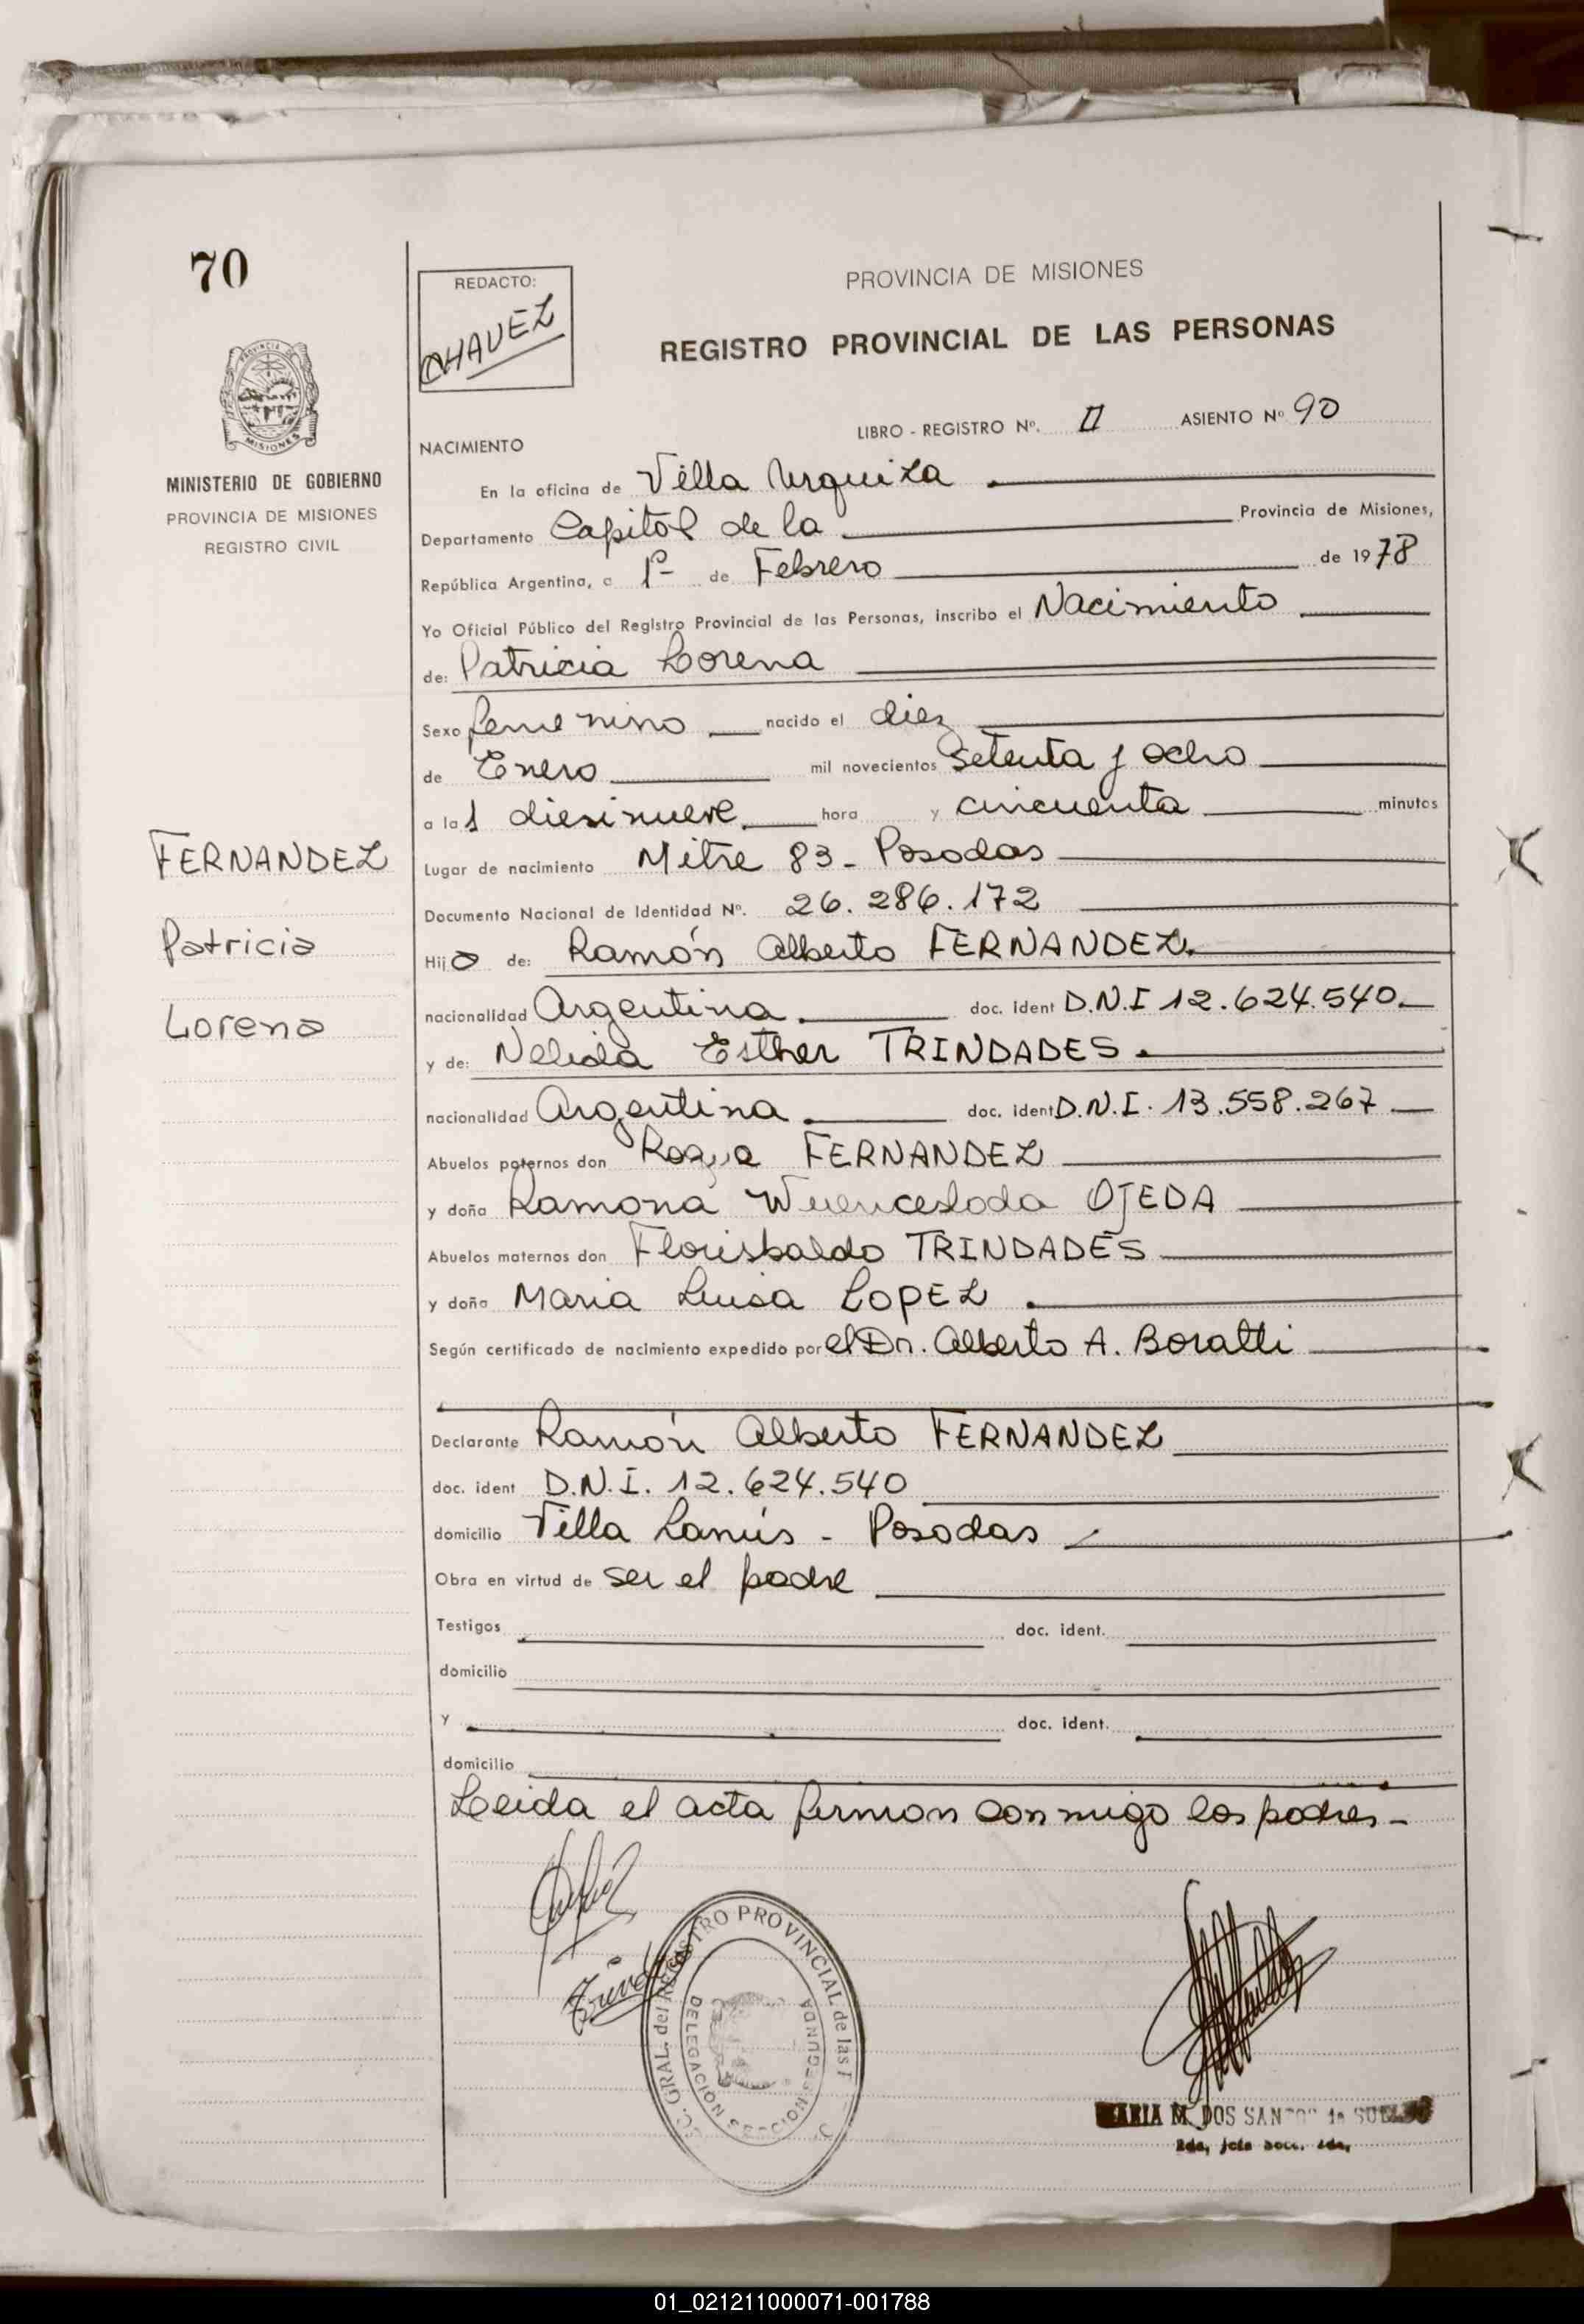 70
REDACTO:
CHAVEZ
PROVINCIA DE MISIONES
REGISTRO PROVINCIAL DE LAS PERSONAS
MISIONES
MINISTERIO DE GOBIERNO
PROVINCIA DE MISIONES
REGISTRO CIVIL
LIBRO - REGISTRO Nº. II ASIENTO Nº 90
NACIMIENTO
En la oficina de Villa Urquiza
Departamento Capital de la Provincia de Misiones,
República Argentina, a 1º de Febrero de 1978
Yo Oficial Público del Registro Provincial de las Personas, inscribo el Nacimiento
de: Patricia Lorena
Sexo femenino nacido el diez
de Enero mil novecientos setenta y ocho
a la s diesinueve hora y cincuenta minutos
FERNANDEZ
Patricia
Lorena
Lugar de nacimiento Mitre 83 - Posadas
Documento Nacional de Identidad Nº. 26.286.172
Hija de: Ramón Alberto FERNANDEZ.
nacionalidad Argentina. doc. ident D.N.I 12.624.540.
y de: Nelida Esther TRINDADES.
nacionalidad Argentina. doc. ident D.N.I. 13.558.267
Abuelos paternos don Roque FERNANDEZ
y doña Ramona OJEDA
Abuelos maternos don Florisbaldo TRINDADES
y doña Maria Luisa LOPEZ.
Según certificado de nacimiento expedido por el Dr. Alberto A. Boratti
Declarante Ramón Alberto FERNANDEZ
doc. ident D.N.I. 12.624.540
domicilio Villa Lanús - Posadas
Obra en virtud de ser el padre
Testigos doc. ident.
domicilio
y doc. ident.
domicilio
Leida el acta firman conmigo los padres -
GRAL. del REGISTRO PROVINCIAL de las
DELEGACION SEGUNDA
MARIA M. DOS SANTOS
01_021211000071-001788